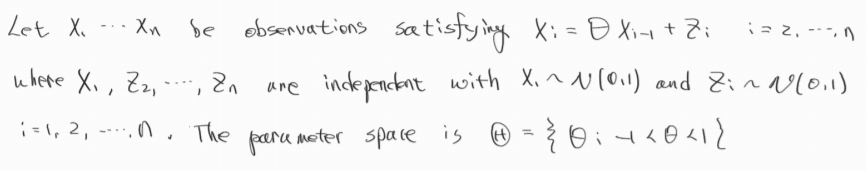 Let X₁ ... Xn be observations satisfying Xi = θ Xi-1 + Zi i = 2, ..., n
where X₁, Z₂, ..., Zn are independent with X₁ ~ N(0,1) and Zi ~ N(0,1)
i = 1, 2, ..., n. The parameter space is Ⓗ = { θ ; -1 < θ < 1 }